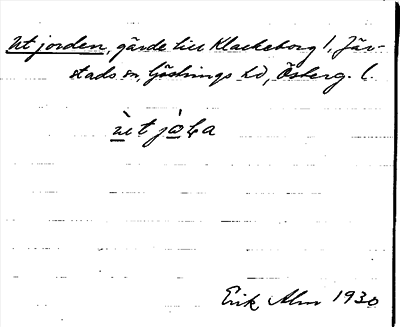 Ut jorden, gärde till Klackeborg 1, Jär-
stads sn, Göstrings hd, Österg. l.
ùt jo̱ɽa
Erik Alm 1930